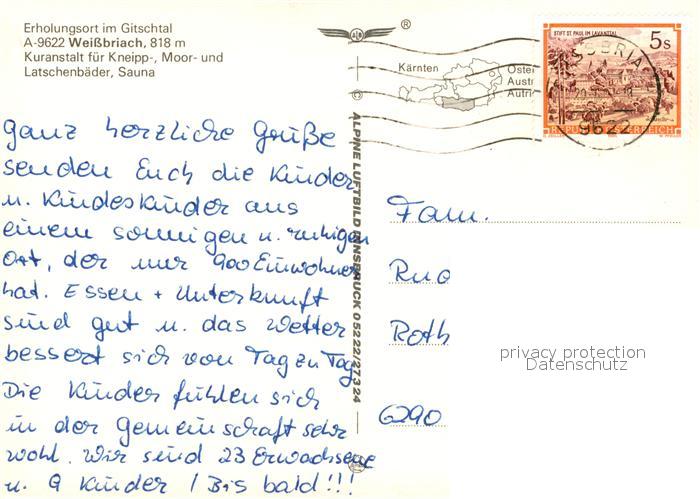 Erholungsort im Gitschtal
A-9622 Weißbriach, 818 m
Kuranstalt für Kneipp-, Moor- und
Latschenbäder, Sauna
®
Kärnten
Öster
Austr
Autri
STIFT ST. PAUL IM LAVANTTAL
5s
REPUBLIK ÖSTERREICH
9622
© ALPINE LUFTBILD INNSBRUCK 05222/27324
ganz herzliche Grüße
senden Euch die Kinder
u. Kindeskinder aus
einem sonnigen u. ruhigen
Ort, der nur 900 Einwohner
hat. Essen + Unterkunft
sind gut u. das Wetter
bessert sich von Tag zu Tag.
Die Kinder fühlen sich
in der Gemeinschaft sehr
wohl. Wir sind 23 Erwachsene
u. 9 Kinder / Bis bald!!!
Fam.
Roth
6290
privacy protection
Datenschutz